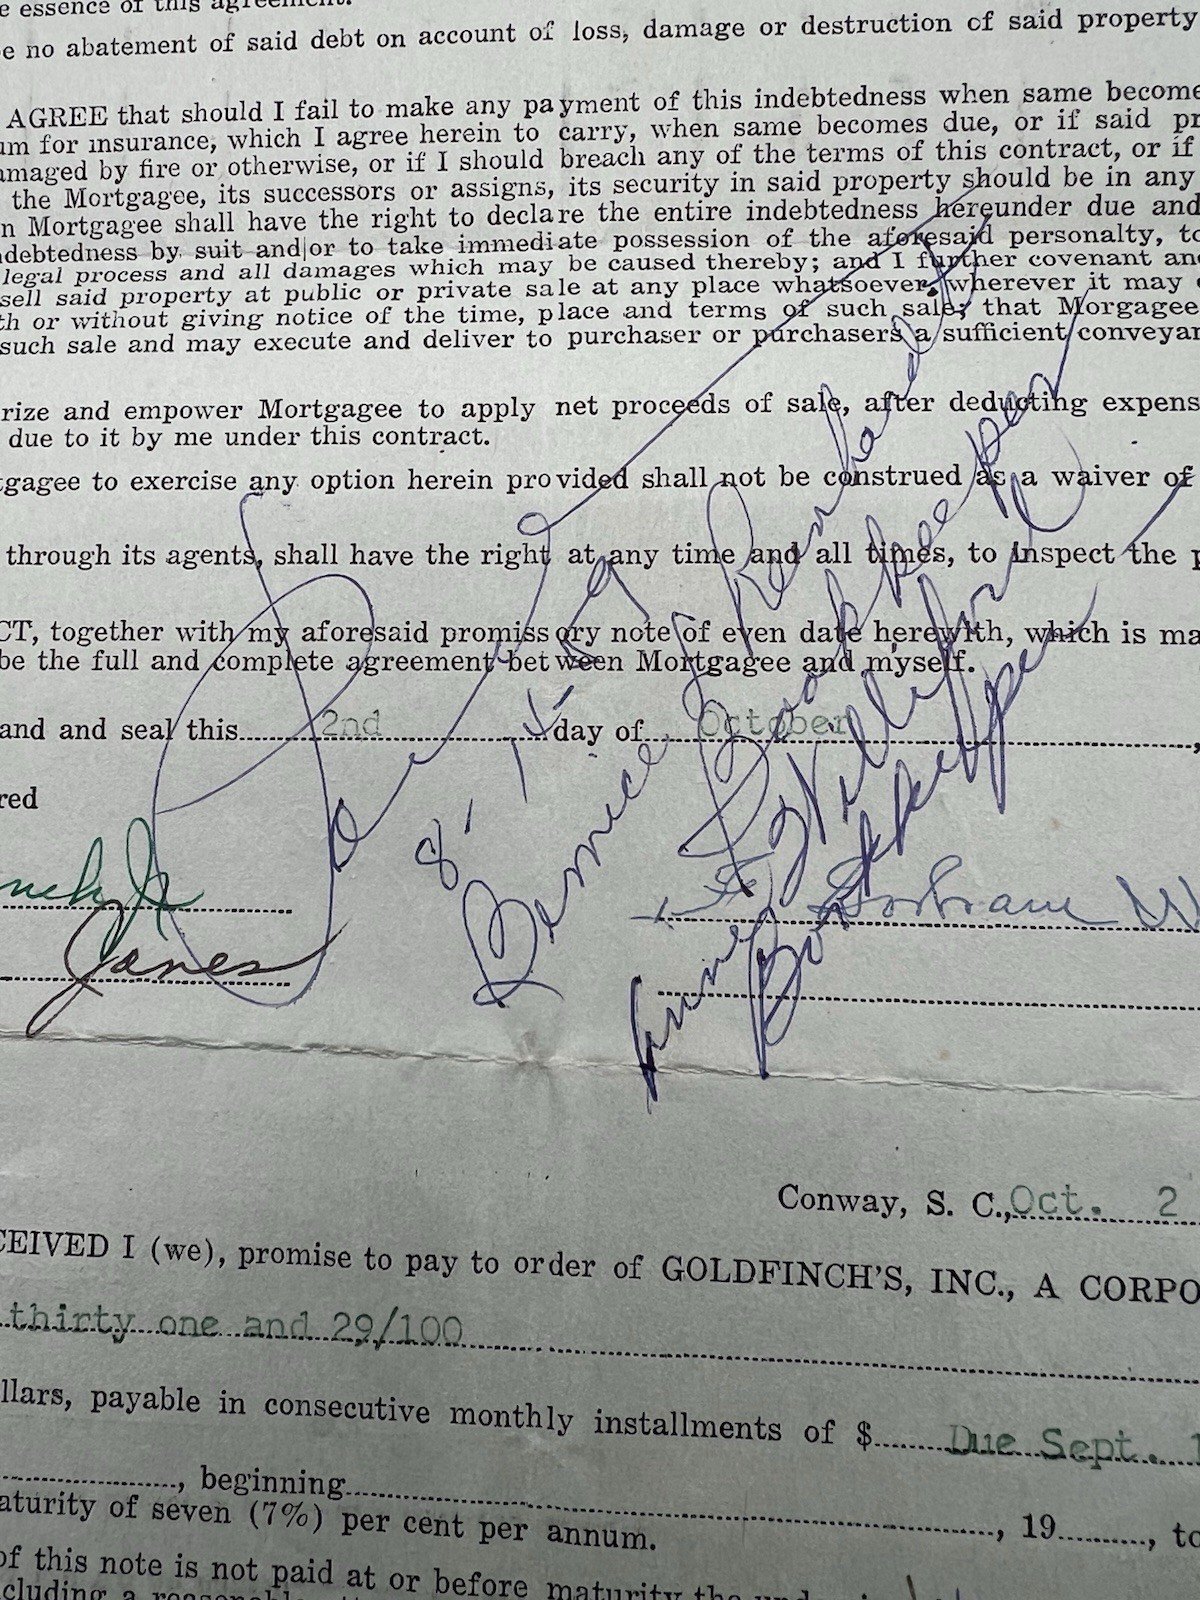 e essence of this agreement.
e no abatement of said debt on account of loss, damage or destruction of said property
AGREE that should I fail to make any payment of this indebtedness when same become
um for insurance, which I agree herein to carry, when same becomes due, or if said pr
amaged by fire or otherwise, or if I should breach any of the terms of this contract, or if
the Mortgagee, its successors or assigns, its security in said property should be in any
n Mortgagee shall have the right to declare the entire indebtedness hereunder due and
ndebtedness by suit and|or to take immediate possession of the aforesaid personalty, to
legal process and all damages which may be caused thereby; and I further covenant an
sell said property at public or private sale at any place whatsoever, wherever it may
th or without giving notice of the time, place and terms of such sale; that Morgagee
such sale and may execute and deliver to purchaser or purchasers a sufficient conveyan
rize and empower Mortgagee to apply net proceeds of sale, after deducting expens
due to it by me under this contract.
tgagee to exercise any option herein provided shall not be construed as a waiver of
through its agents, shall have the right at any time and all times, to inspect the p
CT, together with my aforesaid promissory note of even date herewith, which is ma
be the full and complete agreement between Mortgagee and myself.
and and seal this 2nd day of October
red
Paid
Bernice
Bookkeeper
Anne
Bookkeeper
Jones
Conway, S. C., Oct. 2
CEIVED I (we), promise to pay to order of GOLDFINCH'S, INC., A CORPO
thirty one and 29/100
llars, payable in consecutive monthly installments of $ Due Sept. 1
, beginning , 19 , to
aturity of seven (7%) per cent per annum.
of this note is not paid at or before maturity the
cluding a reasonable